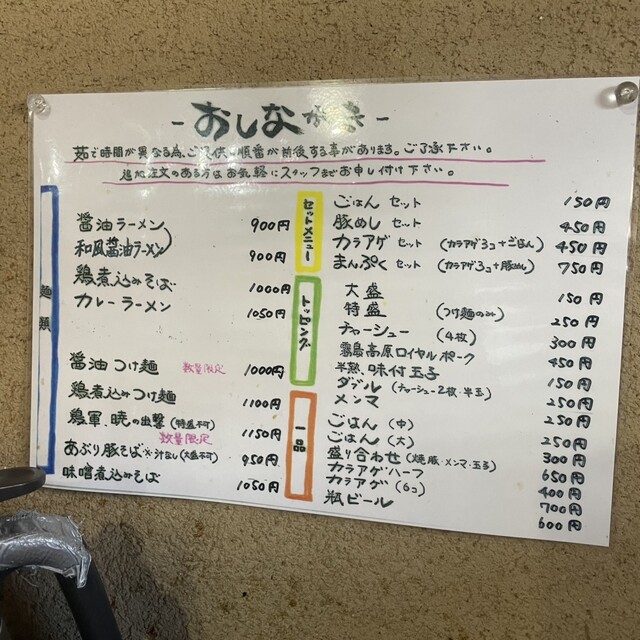 -おしながき-
茹で時間が異なる為、ご提供の順番が前後する事があります。ご了承下さい。
追加注文のある方はお気軽にスタッフまでお申し付け下さい。
麺類
醤油ラーメン 900円
和風醤油ラーメン 900円
鶏煮込みそば 1000円
カレーラーメン 1050円
醤油つけ麺 数量限定 1000円
鶏煮込みつけ麺 1100円
鶏軍、暁の出撃(特盛不可) 数量限定 1150円
あぶり豚そば※汁なし(大盛不可) 950円
味噌煮込みそば 1050円
セットメニュー
ごはんセット 150円
豚めしセット 450円
カラアゲセット (カラアゲ3コ+ごはん) 450円
まんぷくセット (カラアゲ3コ+豚めし) 750円
トッピング
大盛 150円
特盛 (つけ麺のみ) 250円
チャーシュー (4枚) 300円
霧島高原ロイヤルポーク 450円
半熟味付玉子 150円
ダブル (チャーシュー2枚・半玉) 250円
メンマ 250円
一品
ごはん (中) 250円
ごはん (大) 300円
盛り合わせ (焼豚・メンマ・玉子) 650円
カラアゲハーフ 400円
カラアゲ (6コ) 700円
瓶ビール 600円